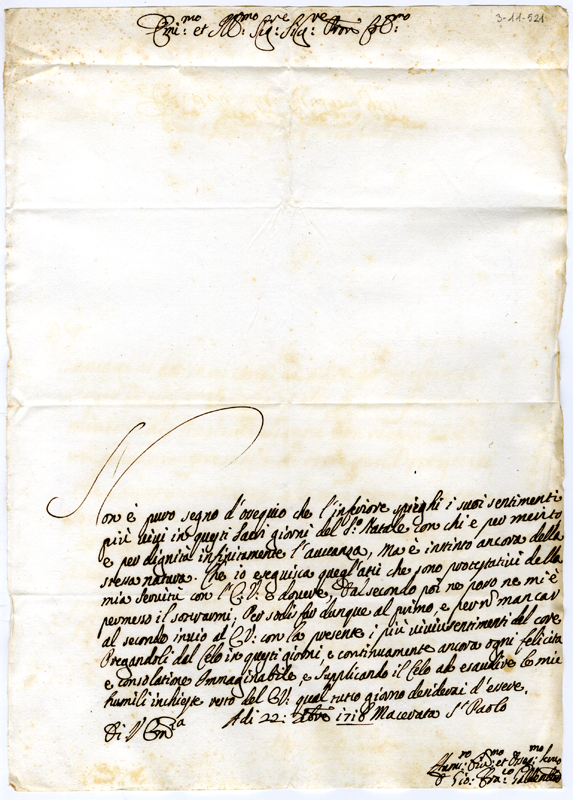 3-11-521
Emi:mo et R:mo Sig:re Sig:re Pron Col:mo
Non è puro segno d'ossequio che l'inferiore spieghi i suoi sentimenti
più vivi in questi Sacri giorni del S:o Natale con chi e per merito
e per dignita infinitamente l'avvanza, ma è instinto ancora della
stessa natura. Che io eseguisca quegl'atti che sono protestativi della
mia servitù con l'E.V: è dovere, dal secondo poi ne posso ne mi è
permesso il sottrarmi, Per sodisfar dunque al primo, e per nõ mancar
al secondo invio al E.V: con la presente i più vivi sentimenti del core
Pregandoli dal Celo in questi giorni, e continuamente ancora ogni felicita
e consolatione Immaginabile e supplicando il Celo ad esaudire le mie
humili inchieste resto del EV: qual tutto giorno desiderai d'essere.
Di V Em:a Adi 22: Xbre 1718 Macerata S: Paolo
Humi:mo Div:mo et Osseq:mo Servo
D Gio: Fra:co